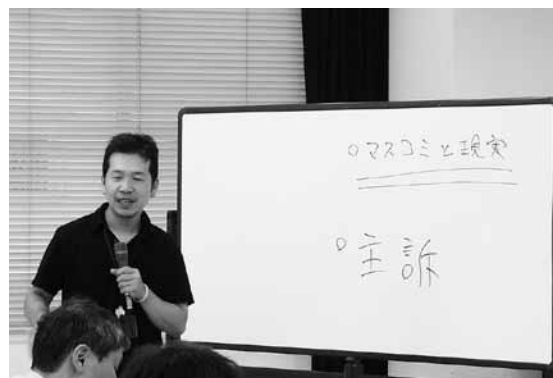 ○マスコミと現実
○主訴